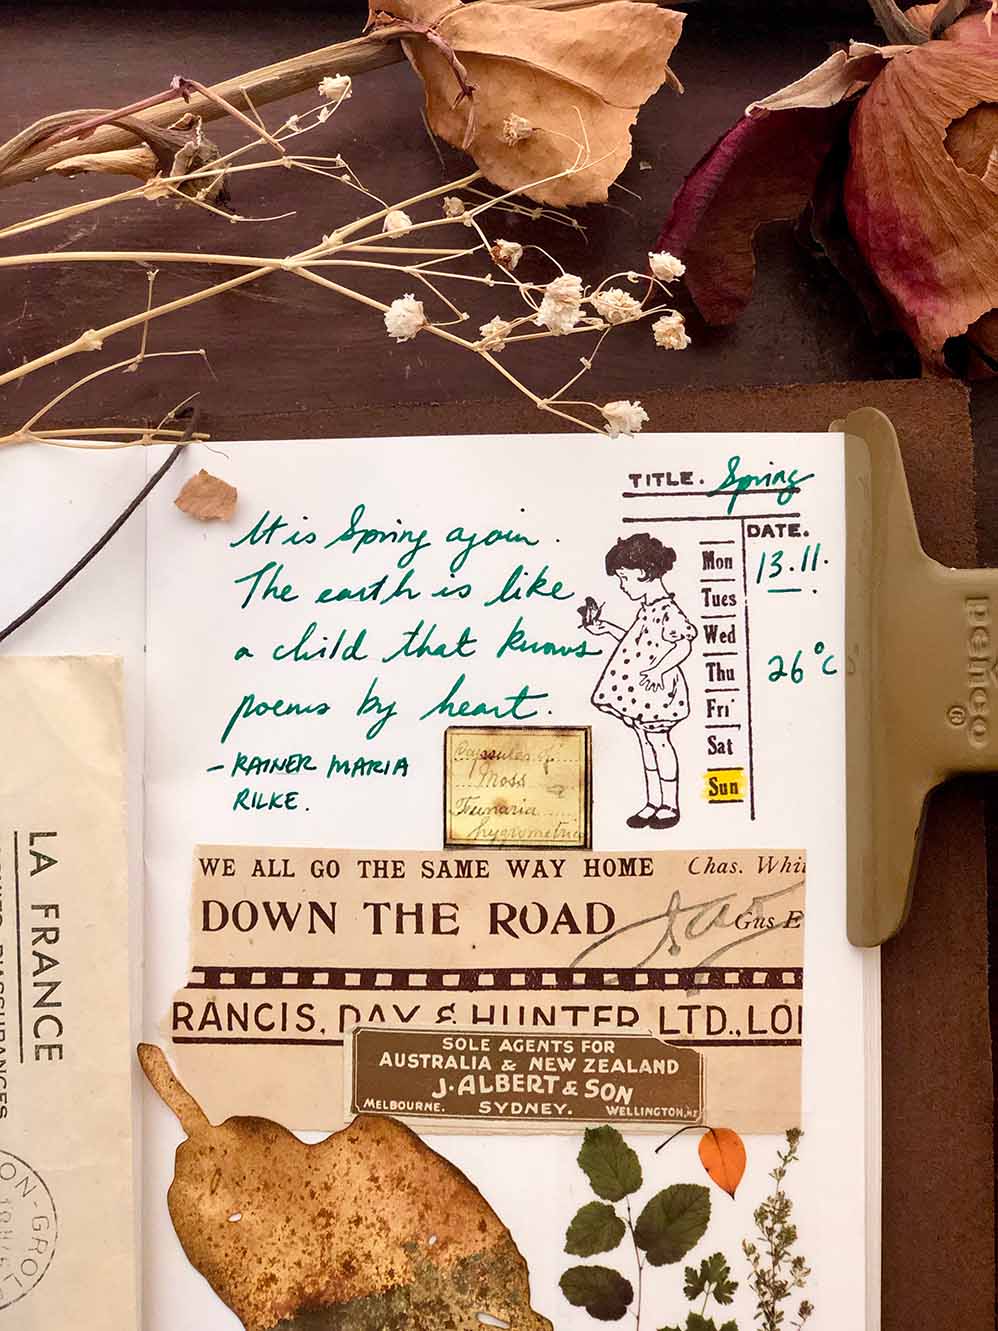 TITLE. Spring
It is Spring again.
The earth is like
a child that knows
poems by heart.
- RAINER MARIA
RILKE.
DATE.
13.11.
26°C
Mon
Tues
Wed
Thu
Fri
Sat
Sun
penco
®
Capsules of
Moss
Funaria
hygrometrica
WE ALL GO THE SAME WAY HOME Chas. Whit
DOWN THE ROAD Gus E
RANCIS, DAY & HUNTER LTD., LON
SOLE AGENTS FOR
AUSTRALIA & NEW ZEALAND
J. ALBERT & SON
MELBOURNE. SYDNEY. WELLINGTON, NZ
LA FRANCE